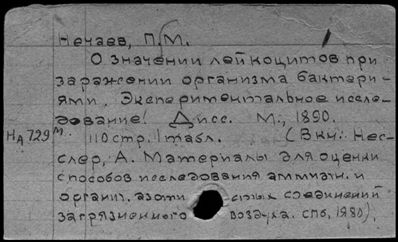 Нечаев, П.М.
О значении лейкоцитов при
заражении организма бактери-
ями. Экспериментальное иссле-
дование! Дисс. М., 1890.
НА 729 м. 110 стр. 1 табл. (В кн.: Нес-
слер, А. Материалы для оценки
способов исследования аммиач. и
органич. азоти стых соединений
загрязненного воздуха. спб, 1980).